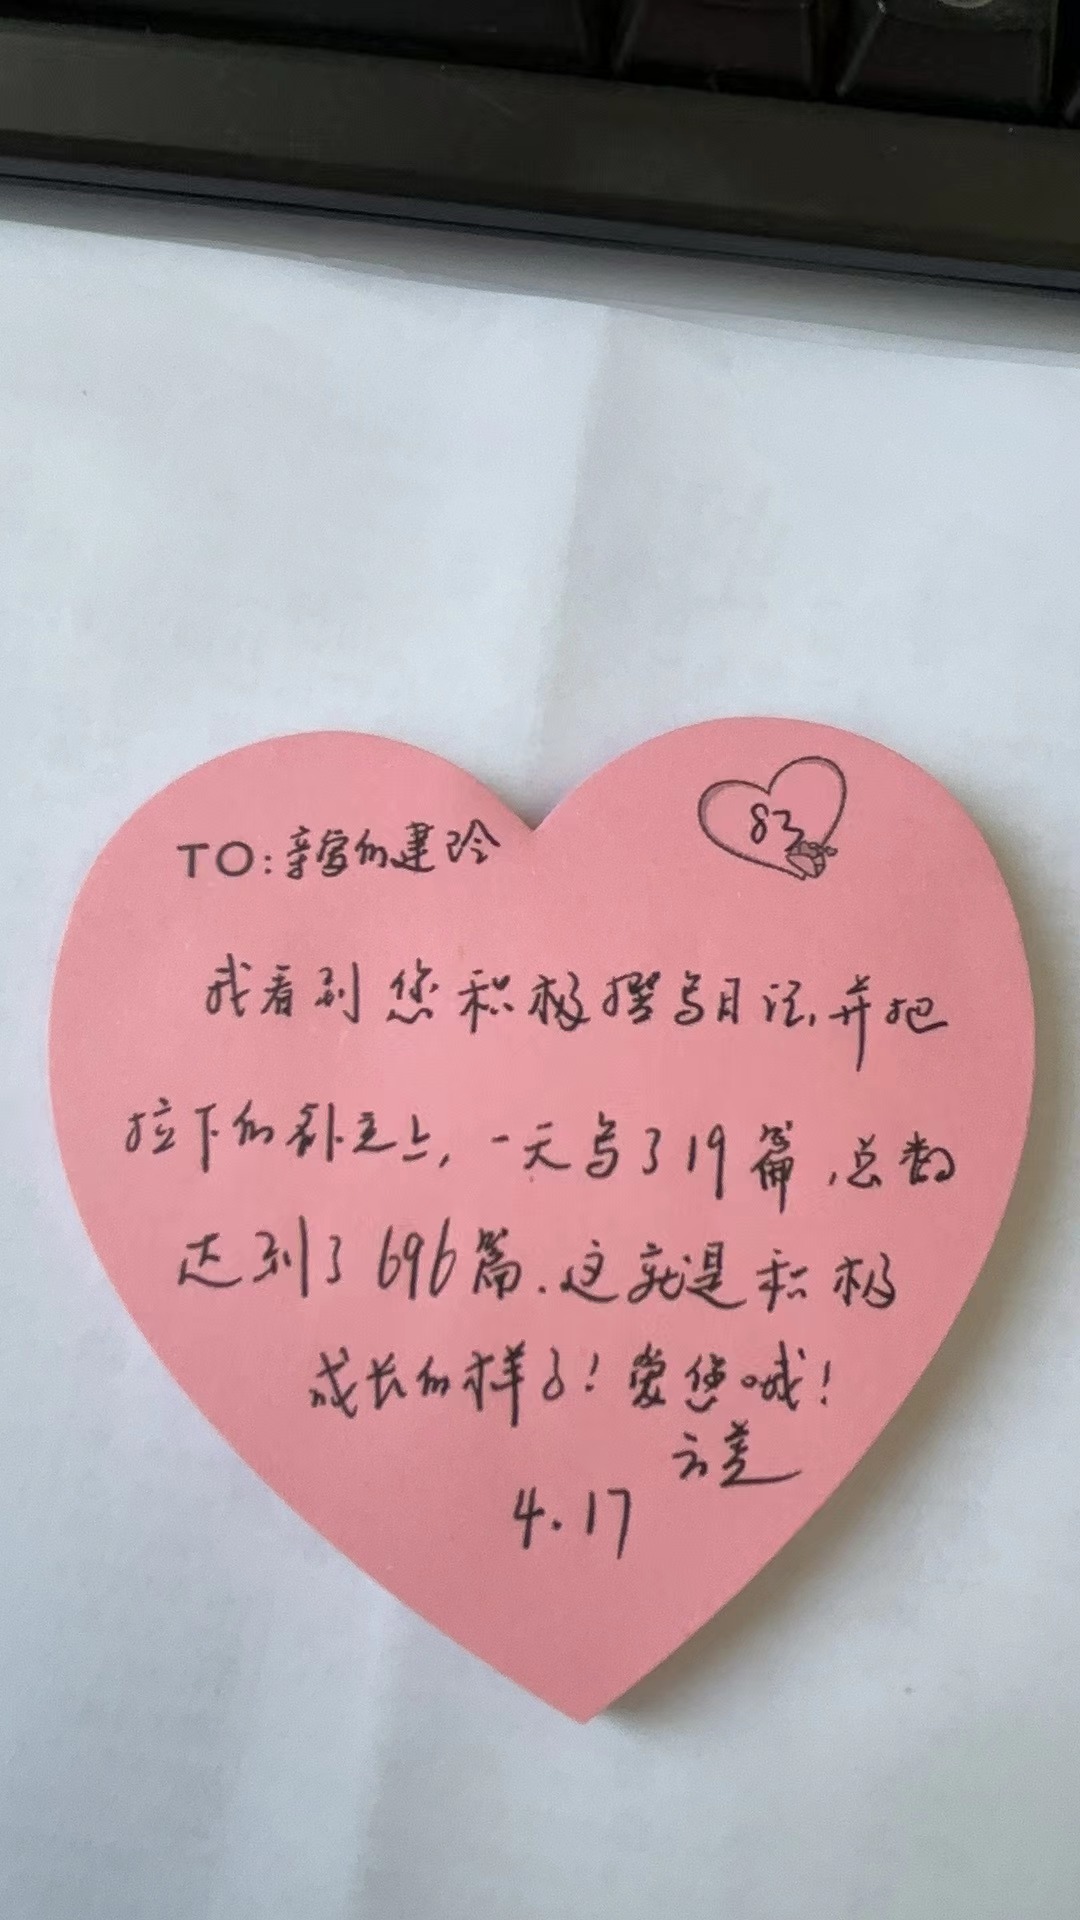 TO: 亲爱的建玲
83
我看到您积极撰写日记,并把
拉下的补充上,一天写了19篇,总数
达到了696篇.这就是积极
成长的样子!爱您哦!
4.17